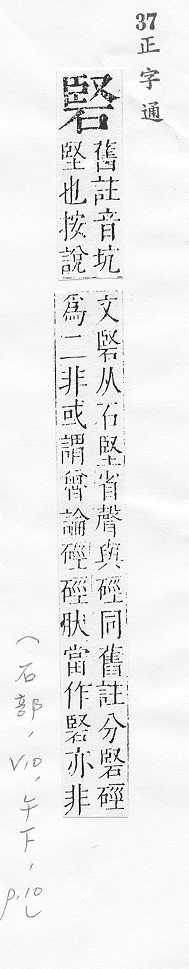 37
正字通
硻
舊註音坑
堅也按說
文硻从石堅省聲與硜同舊註分硻硜
為二非或謂魯論硜硜肰當作硻亦非
(石部,V10,午下,p.10